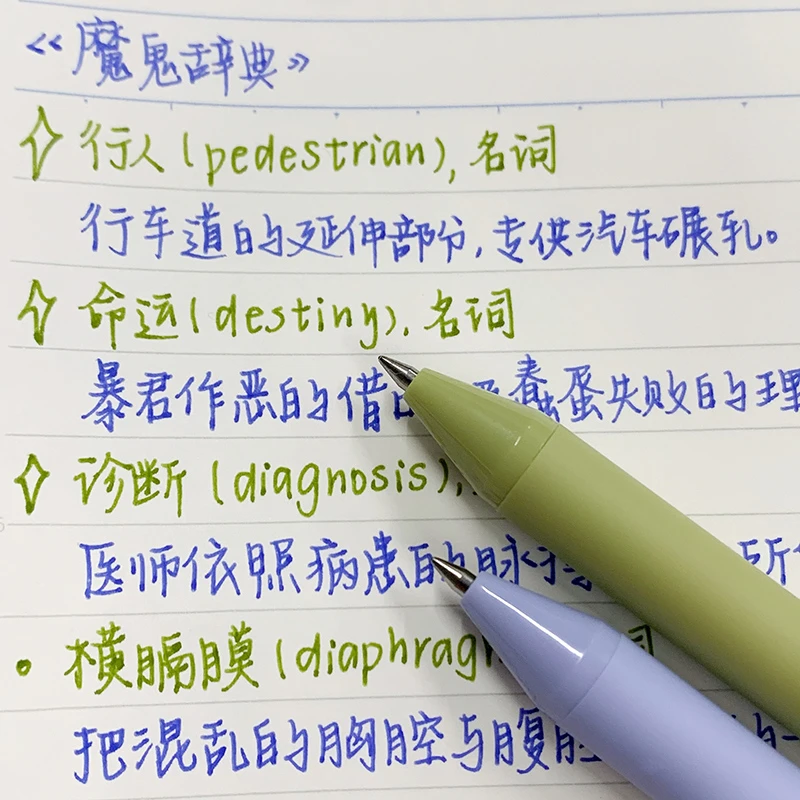 《魔鬼辞典》
行人(pedestrian),名词
行车道的延伸部分,专供汽车碾轧。
命运(destiny),名词
暴君作恶的借 蠢蛋失败的理
诊断(diagnosis),
医师依照病患的脉 所
横膈膜(diaphrag 词
把混乱的胸腔与腹